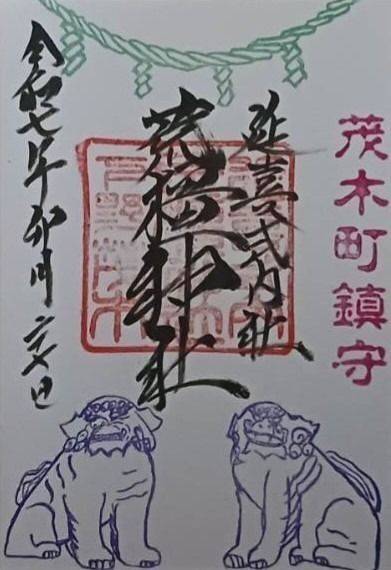 茂木町鎮守
延喜式内社
荒橿神社
令和七年卯月